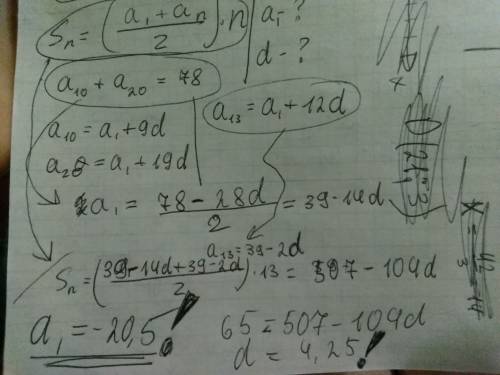 Sₙ = ((a₁ + aₙ)/2) · n
a₁ - ?
d - ?
a₁₀ + a₂₀ = 78
a₁₃ = a₁ + 12d
a₁₀ = a₁ + 9d
a₂₀ = a₁ + 19d
a₁ = (78 - 28d)/2 = 39 - 14d
a₁₃ = 39 - 2d
Sₙ = ((39 - 14d + 39 - 2d)/2) · 13 = 507 - 104d
a₁ = -20,5!
65 = 507 - 104d
d = 4,25!